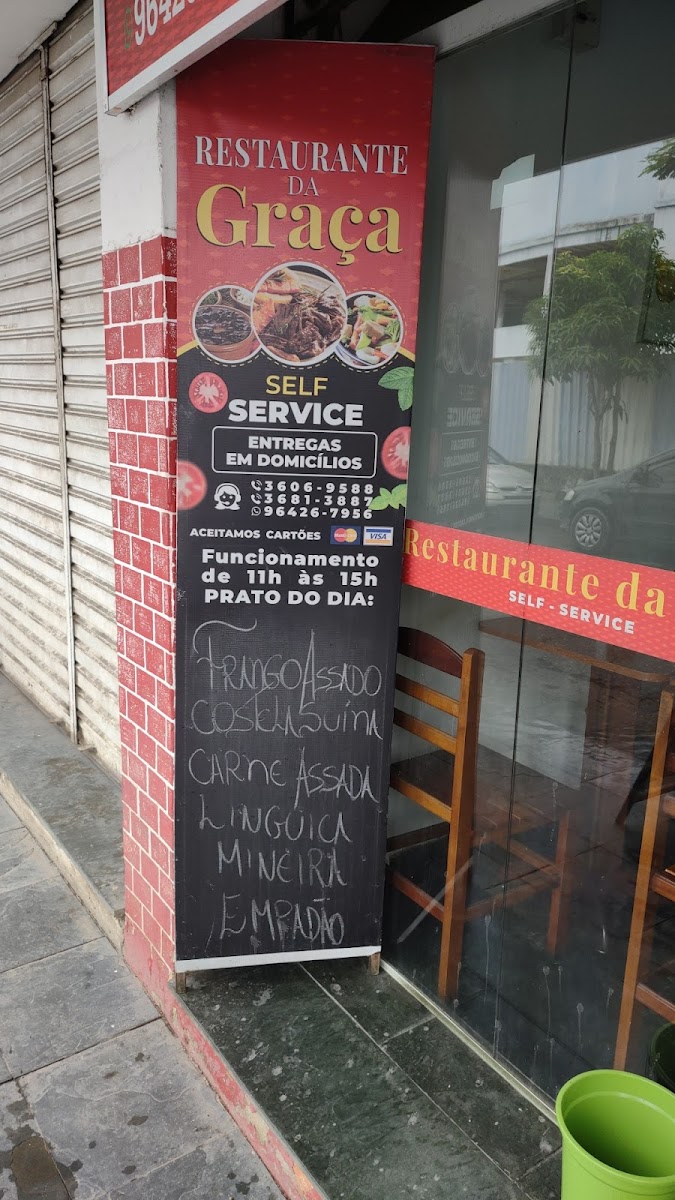 9642
RESTAURANTE
DA
Graça
SELF
SERVICE
ENTREGAS
EM DOMICÍLIOS
3606-9588
3681-3887
96426-7956
ACEITAMOS CARTÕES MasterCard VISA
Funcionamento
de 11h às 15h
PRATO DO DIA:
FRANGO ASSADO
COSTELA SUÍNA
CARNE ASSADA
LINGUIÇA
MINEIRA
EMPADÃO
Restaurante da
SELF - SERVICE